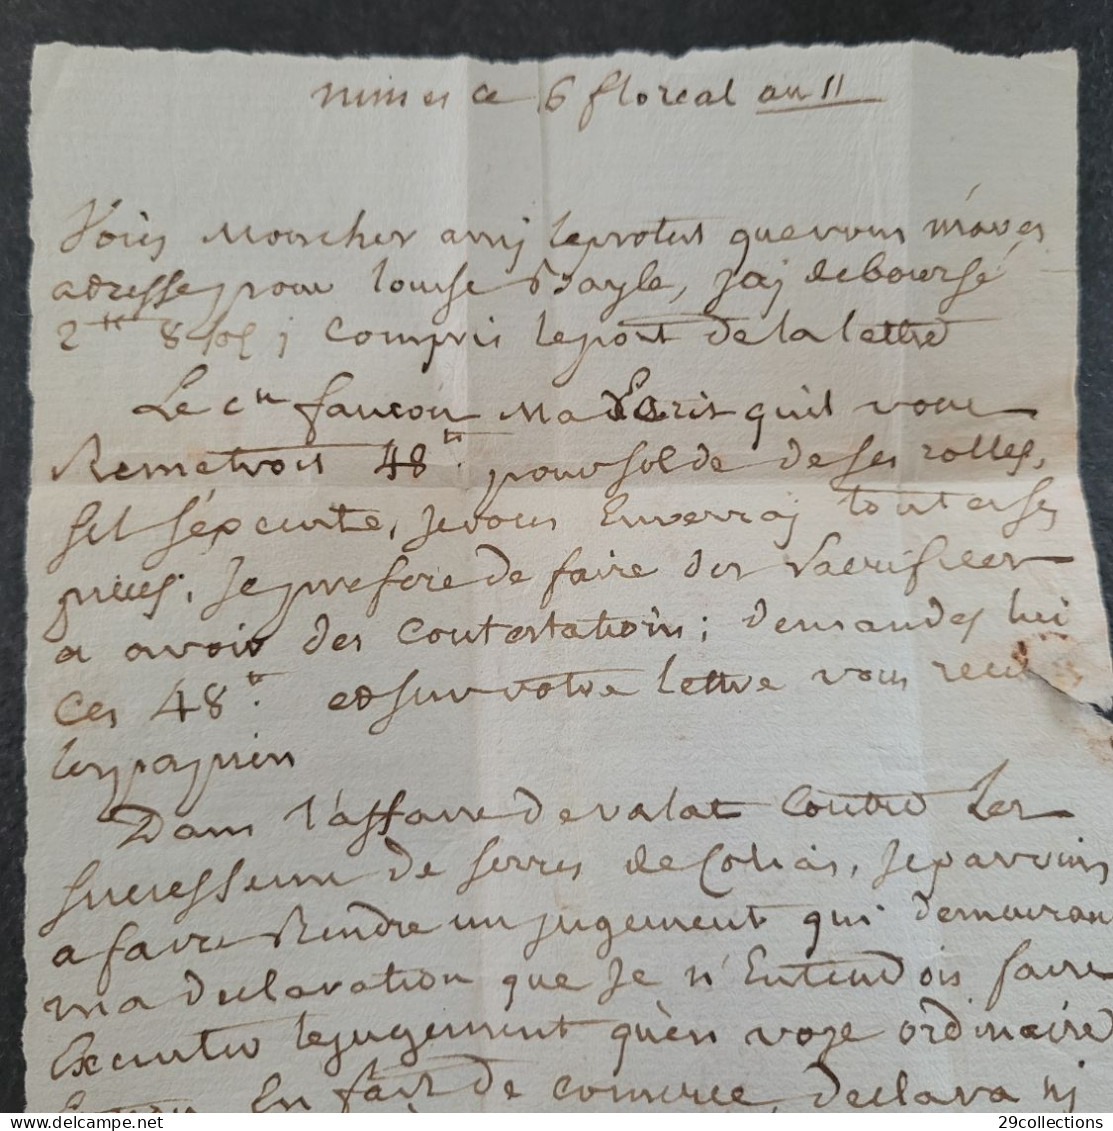 nimes ce 6 floreal an 11
Voies Moncher ami leprotet quevous m'aves
adressé pour louise Bayle, jaj deboursé
2 tt 8 sols j compris leport de la lettre
Le cen faucon Ma Ecrit quil vous
Remetroit 48 tt. pour solde de ses rolles,
sil s'execute, jevous Enverraj toutes ses
pieces; Je prefere de faire des sacrifices
a avoir des Contestations; demandes lui
Ces 48 tt. et sur votre lettre vous
les papiers
Dans l'affaire de valat Contre Les
successeurs de serres de Colias, je parvins
a faire Rendre un jugement qui demeurant
ma declaration que Je n'Entendois faire
Executer le jugement qu'en voye ordinaire
En fait de comerce, declara nj
29collections